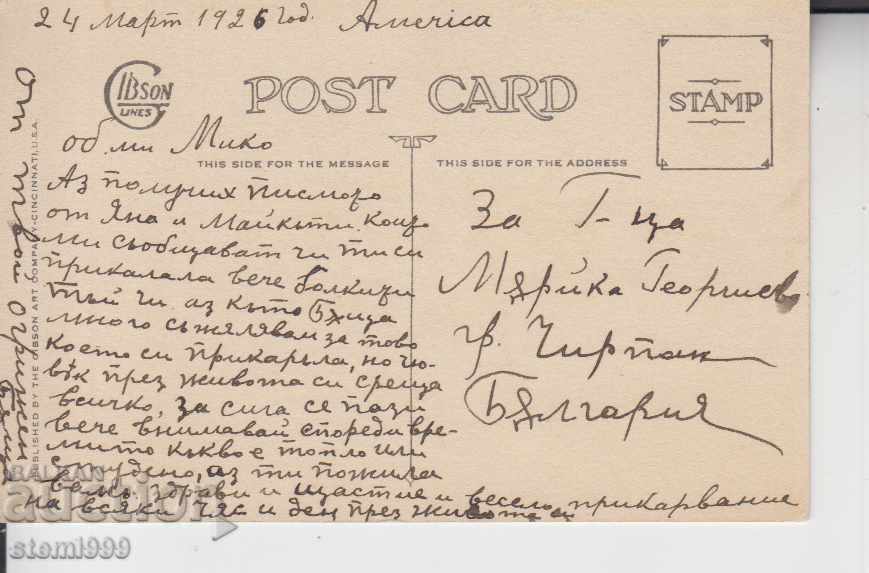 24 Март 1926 год. America
GIBSON
LINES
POST CARD
STAMP
THIS SIDE FOR THE MESSAGE
THIS SIDE FOR THE ADDRESS
об. ми Мико
Аз получих писмото
от Яна и Майкъти. Които
ми съобщават чи ти си
прикалала вече болкизи
тъй чи аз като
много съжелявам за тово
което си прикаръла, но чю-
вѣк през живота си среща
всичко, за сига се пази
вече внимавай според вре-
мито какво е топло или
студено, аз ти пожила
вам здрави и щастие и весело прикарвание
на всяки час и ден през живота си
От твой огрижен
PUBLISHED BY THE GIBSON ART COMPANY-CINCINNATI, U.S.A.
За Г-ца
Мярйка Георгиева
гр. Чирпан
България
BALKAN
auction
stemi999